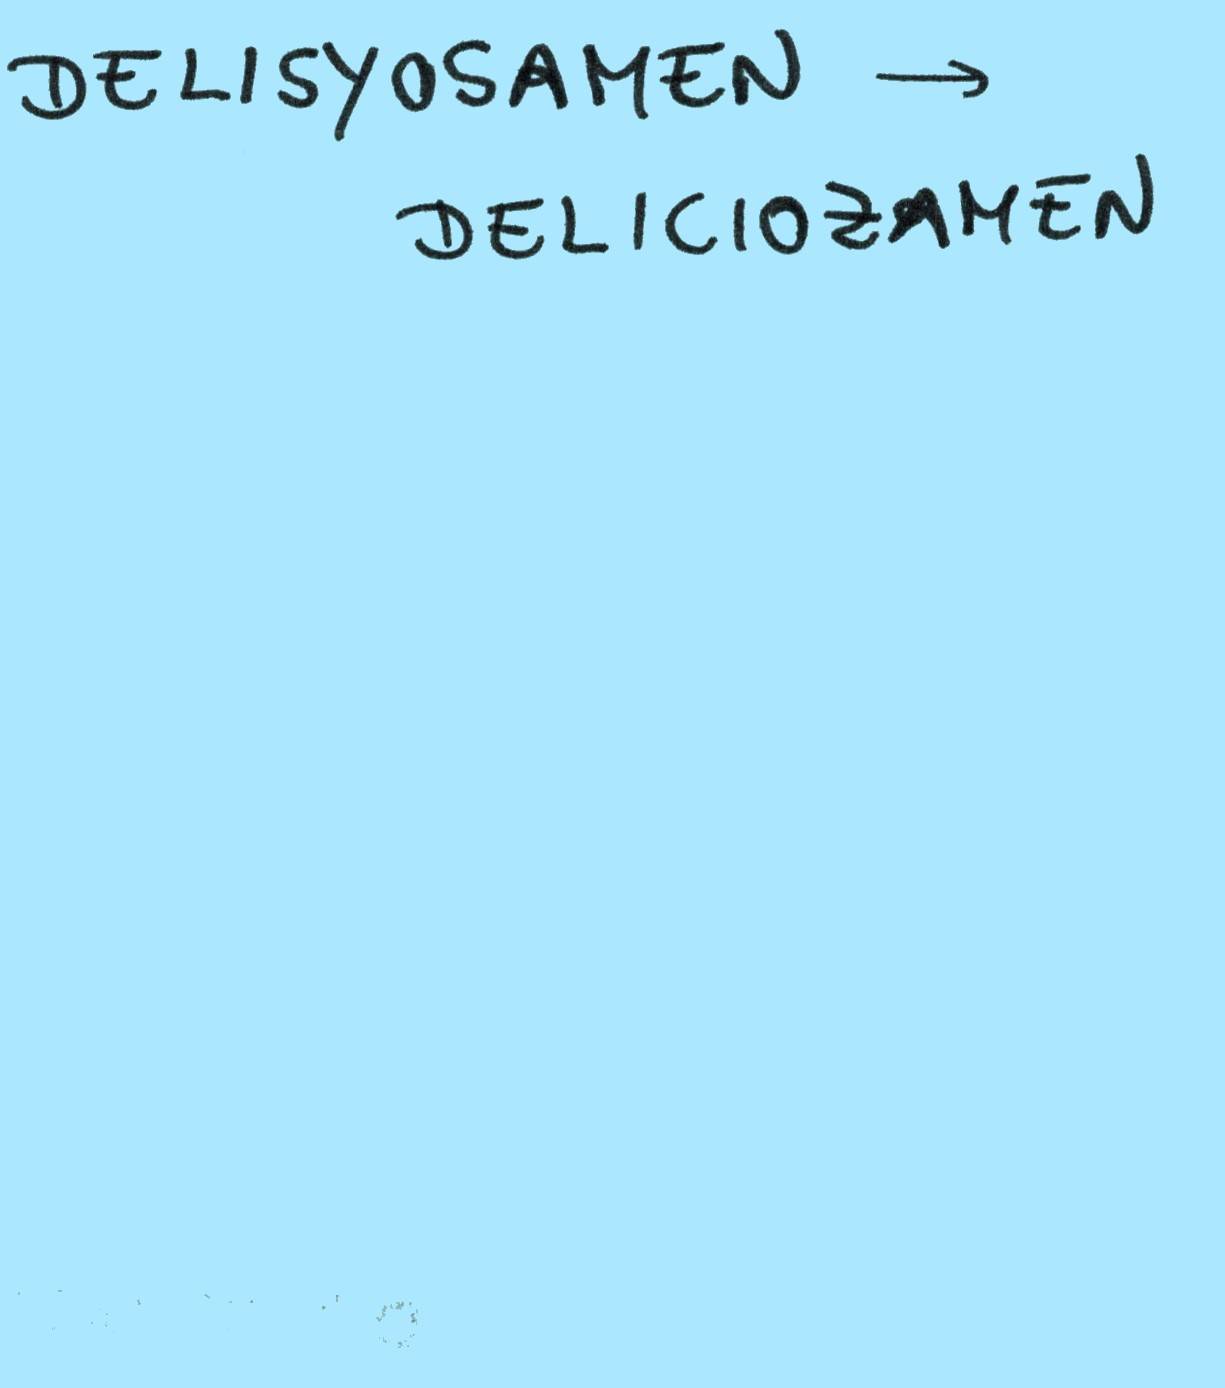 DELISYOSAMEN →
DELICIOZAMEN